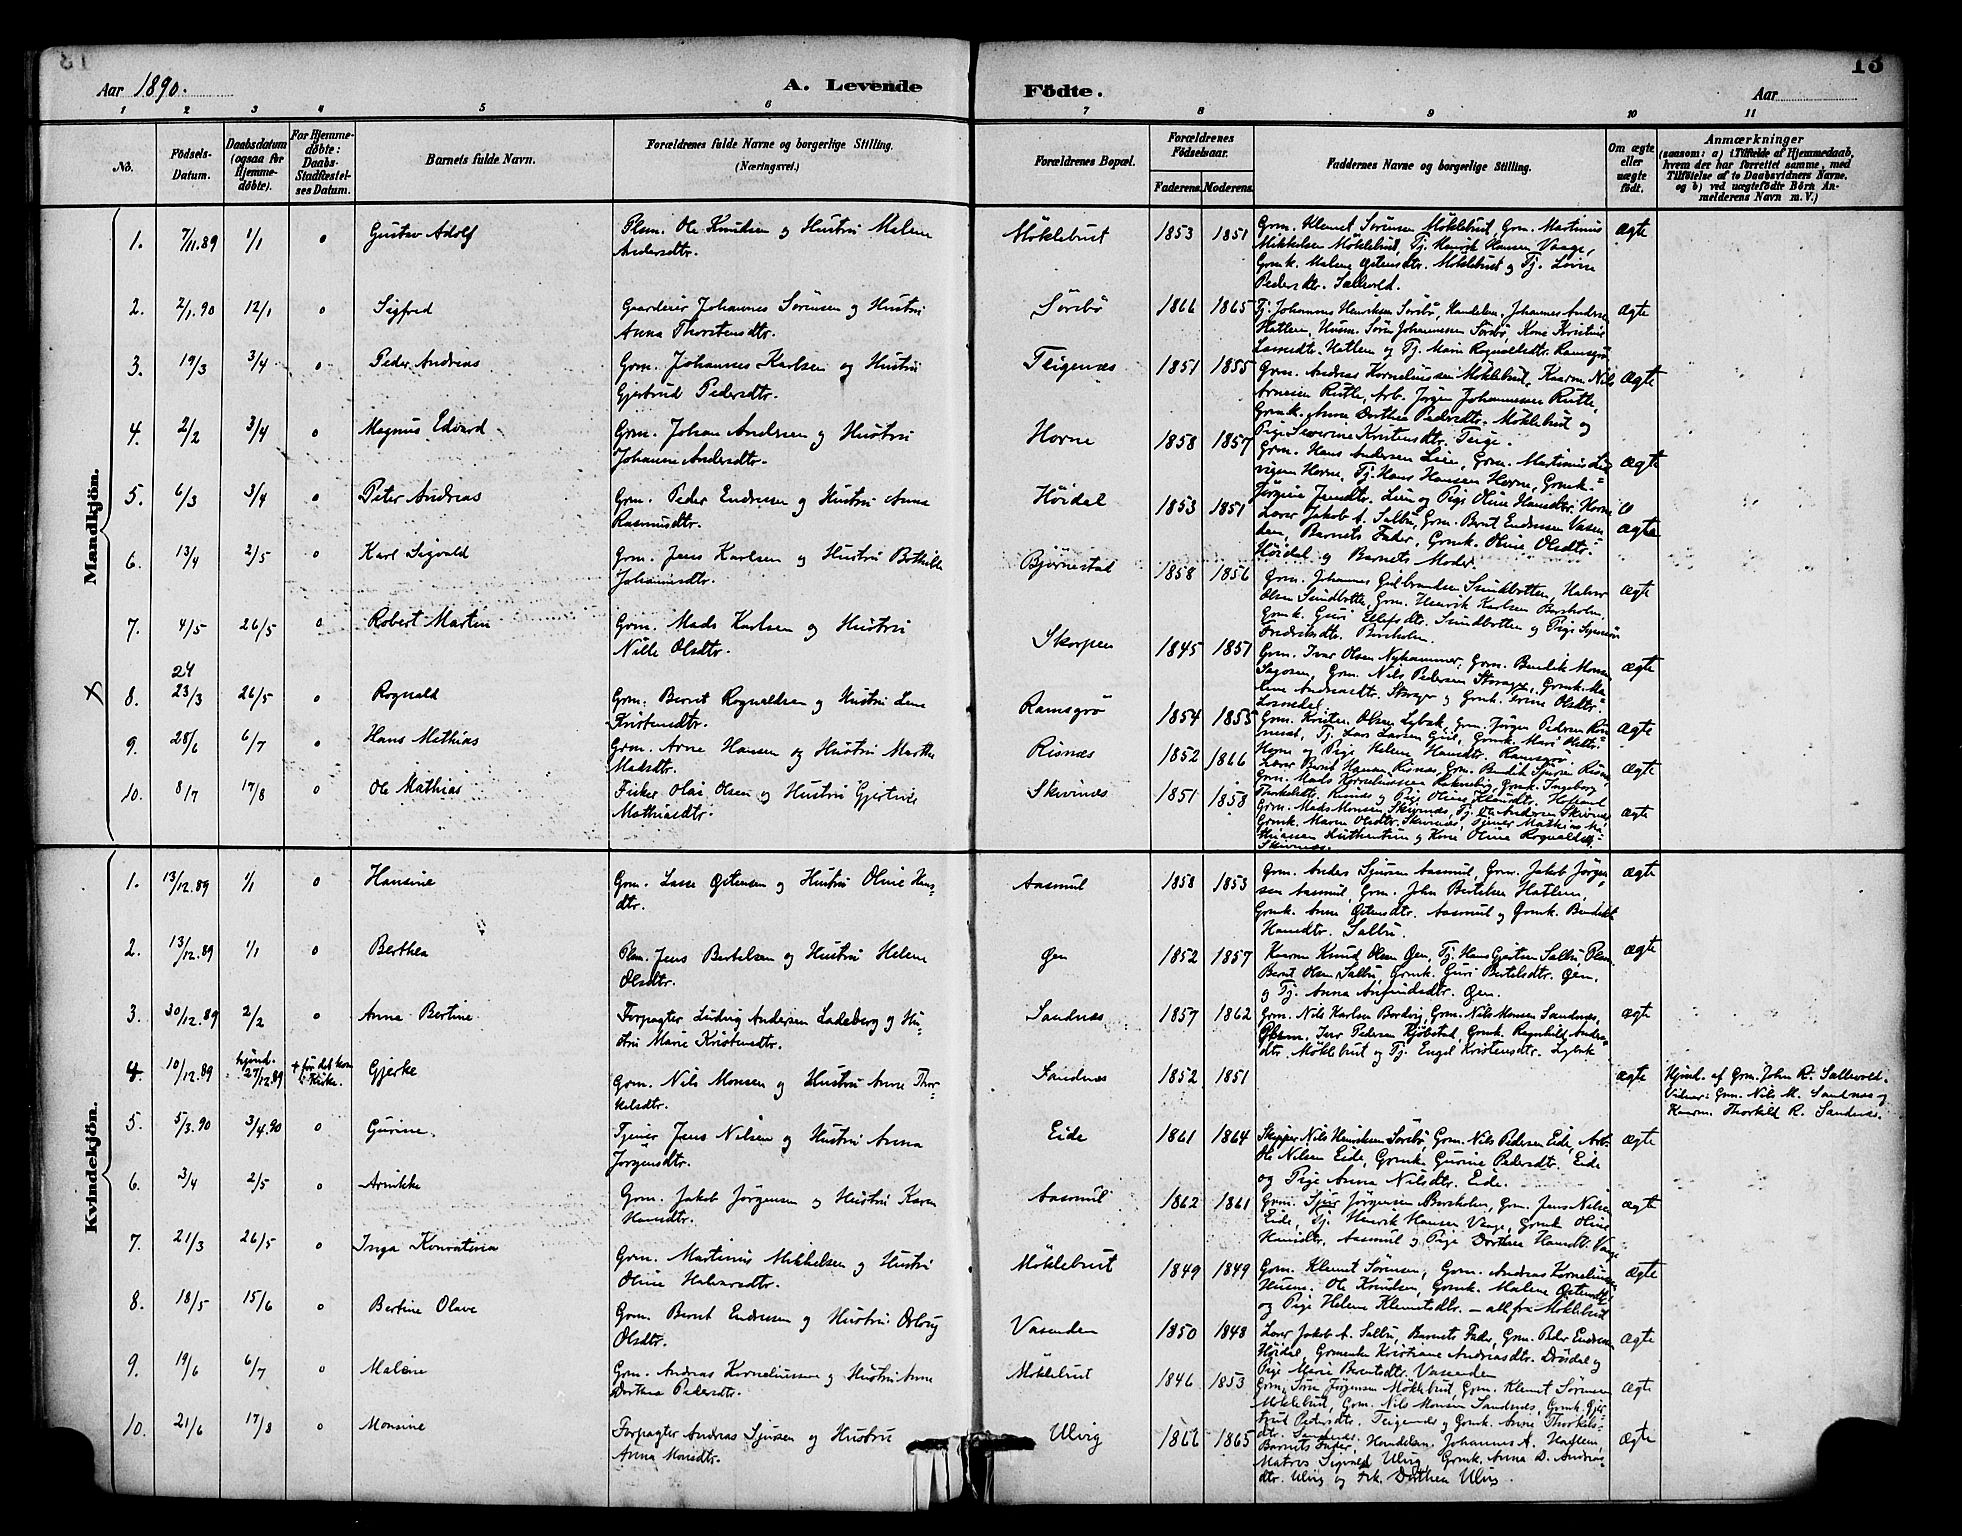 13
Aar 1890.
A. Levende Födte.
Aar
1 2 3 4 5 6 7 8 9 10 11
No.
Födsels-Datum.
Daabsdatum (ogsaa for Hjemmedöbte).
For Hjemmedöbte: Daabs-Stadfæstelses Datum.
Barnets fulde Navn.
Forældrenes fulde Navne og borgerlige Stilling.
(Næringsvei.)
Forældrenes Bopæl.
Forældrenes Födselsaar.
Faderens. Moderens.
Faddernes Navne og borgerlige Stilling.
Om ægte eller uægte födt.
Anmærkninger
(saasom: a) i Tilfælde af Hjemmedaab, hvem der har forrettet samme, med Tilföielse af to Daabsvidners Navne. og b) ved uægtefödte Börn Anmelderens Navn m. V.)
Mandkjön.
1. 7/11.89 1/1 o Gustav Adolf Plsm. Ole Knudsen og Hustru Malene Andersdtr. Möklebust 1853 1851 Grm. Klemet Sörensen Möklebust, Grm. Martinus Mikkelsen Möklebust, Tj. Henrik Hansen Vaage, Grmk. Malene Østensdtr. Möklebust og Tj. Lovise Pedersdtr. Sallevold. Ægte
2. 2/1.90 12/1 o Sigfred Gaardeier Johannes Sörensen og Hustru Anna Thorstensdtr. Sörsbö 1866 1865 Tj. Johannes Henriksen Sörsbö, Handelsm. Johannes Andersen Hatlem, Husm. Sören Johannessen Sörsbö, Kone Kristine Lassedtr. Hatlem og Tj. Marie Rognaldsdtr. Ramsgrö Ægte
3. 19/3 3/4 o Peder Andreas Grm. Johannes Karlsen og Hustru Gjertrud Pedersdtr. Teigenæs 1851 1855 Grm. Andreas Korneliussen Möklebust, Kaarm. Nils Arnesen Rutle, Arb. Jörgen Johannessen Rutle, Grmk. Anne Dorthea Pedersdtr. Möklebust og Pige Severine Kristensdtr. Teige. Ægte
4. 2/2 3/4 o Magnus Edvard Grm. Johan Andersen og Hustru Johanne Andersdtr. Horne 1858 1857 Grm. Hans Andersen Lien, Grm. Martinus Horne, Tj. Hans Hansen Horne, Grmk. Jörgine Jensdtr. Lien og Pige Oline Hansdtr. Horne Ægte
5. 6/3 3/4 o Peter Andreas Grm. Peder Endresen og Hustru Anna Rasmusdtr. Höidal 1853 1851 Lærer Jakob A. Salbu, Grm. Bernt Endresen Vasenden, Barnets Fader, Grmk. Oline Olsdtr. Höidal og Barnets Moder. Ægte
6. 13/4 2/5 o Karl Sigvald Grm. Jens Karlsen og Hustru Bothilde Johannesdtr. Björnestad 1858 1856 Grm. Johannes Gulbrandsen Sundbotten, Halvor Olsen Sundbotten, Grm. Henrik Karlsen Borsholm, Grmk. Guri Ellefsdtr. Sundbotten og Pige Borsholm. Ægte
7. 4/5 26/5 o Robert Martin Grm. Mads Karlsen og Hustru Nille Olsdtr. Skorpen 1845 1851 Grm. Ivar Olsen Nyhammer, Grm. Bendik Monsen, Grm. Nils Pedersen, Grmk. Malene Andreasdtr. og Grmk. Olsdtr. Ægte
X
8. 24 23/3 26/5 o Rognald Grm. Bernt Rognaldsen og Hustru Lene Kristensdtr. Ramsgrö 1854 1855 Grm. Kristen Olsen Lybæk, Grm. Jörgen Pedersen, Tj. Lars Larsen, Grmk. Mari Olsdtr. Horne og Pige Helene Hansdtr. Ramsgrö. Ægte
9. 28/6 6/7 o Hans Mathias Grm. Arne Hansen og Hustru Marthe Madsdtr. Risnæs 1852 1866 Lærer Bernt Hansen Risnæs, Grm. Bendik Sjursen Risnæs, Grm. Mads Korneliussen, Grmk. Ingeborg Thorkelsdtr. Risnæs og Pige Oline Ægte
10. 8/7 17/8 o Ole Mathias Fisker Olai Olsen og Hustru Gjertine Mathiasdtr. Skivenæs 1851 1858 Grm. Mads Monsen Skivenæs, Tj. Ole Andersen Skivenæs, Grmk. Maren Olsdtr. Skivenæs, Tjener Mathias Mathiassen og Kone Olina Rognaldsdtr. Skivenæs. Ægte
Kvindekjön.
1. 13/12.89 1/1 o Hansine Grm. Lasse Østensen og Hustru Oline Hansdtr. Aasmul 1858 1853 Grm. Anders Sjursen Aasmul, Grm. Jakob Jörgensen Aasmul, Grm. John Bertelsen Hatlem, Grmk. Anne Østensdtr. Aasmul og Grmk. Bendikte Hansdtr. Salbu. Ægte
2. 13/12.89 1/1 o Berthea Plsm. Jens Bertelsen og Hustru Helene Olsdtr. Øen 1852 1857 Kaarm. Knud Olsen Øen, Tj. Hans Gjertsen Salbu, Plsm. Bernt Olsen Salbu, Grmk. Guri Bertelsdtr. Øen, og Tj. Anna Anfindsdtr. Øen. Ægte
3. 30/12.89 2/2 o Anna Bertine Forpagter Ludvig Andersen Ladeberg og Hustru Marie Kristensdtr. Sandnæs 1857 1862 Grm. Nils Karlsen Bordvig, Grm. Nils Monsen Sandnæs, Plsm. Iver Pedersen Kjöbstad, Grmk. Ragnhild Andersdtr. Möklebust og Tj. Engel Kristensdtr. Lybæk Ægte
4. 10/12.89 hjmd. 27/12.89 + för det kom t. Kirke. Gjerke Grm. Nils Monsen og Hustru Anne Thorkelsdtr. Sandnæs 1852 1851 Ægte Hjmd. af Grm. John R. Sallevold. Vidner: Grm. Nils M. Sandnæs og Kaarm. Thorkild R. Sandnæs.
5. 5/3.90 3/4.90 o Gurine. Tjener Jens Nilsen og Hustru Anna Jörgensdtr. Eide 1861 1864 Skipper Nils Henriksen Sörsbö, Grm. Nils Pedersen Eide, Arb. Ole Nilsen Eide, Grmk. Gurine Pedersdtr. Eide og Pige Anna Nilsdtr. Eide. Ægte
6. 3/4 2/5 o Arnikke Grm. Jakob Jörgensen og Hustru Karen Hansdtr. Aasmul 1862 1861 Grm. Sjur Jörgensen Borsholm, Grm. Jens Nilsen Eide, Tj. Henrik Hansen Vaage, Grmk. Oline Hansdtr. Aasmul og Pige Dorthea Hansdtr. Vaage Ægte
7. 21/3 26/5 o Inga Konratina Grm. Martinus Mikkelsen og Hustru Oline Halvorsdtr. Möklebust 1849 1849 Grm. Klemet Sörensen, Grm. Andreas Korneliussen, Husm. Ole Knudsen, Grmk. Malene Østensdtr. og Pige Helene Klemetsdtr. — alle fra Möklebust Ægte
8. 18/5 15/6 o Bertine Olave Grm. Bernt Endresen og Hustru Oslaug Olsdtr. Vasenden 1850 1848 Lærer Jakob A. Salbu, Barnets Fader, Grm. Peder Endresen Höidal, Grmenke Kristiane Andreasdtr. Dræsdal og Pige Marie Berntsdtr. Vasenden Ægte
9. 19/6 6/7 o Malene Grm. Andreas Korneliussen og Hustru Anne Dorthea Pedersdtr. Möklebust 1846 1853 Grm. Sören Jörgensen Möklebust, Grm. Klemet Sörensen Möklebust, Grm. Nils Monsen Sandnæs, Grmk. Gjertrud Pedersdtr. Teigenæs og Grmk. Anne Thorkelsdtr. Sandnæs. Ægte
10. 21/6 17/8 o Monsine Forpagter Andreas Sjursen og Hustru Anna Monsdtr. Ulvig 1866 1865 Barnets Fader, Handelsm. Johannes A. Hatlem, Matros Sigvald Ulvig, Grmk. Anna D. Andreasdtr. Ulvig og Frk. Dorthea Ulvig. Ægte